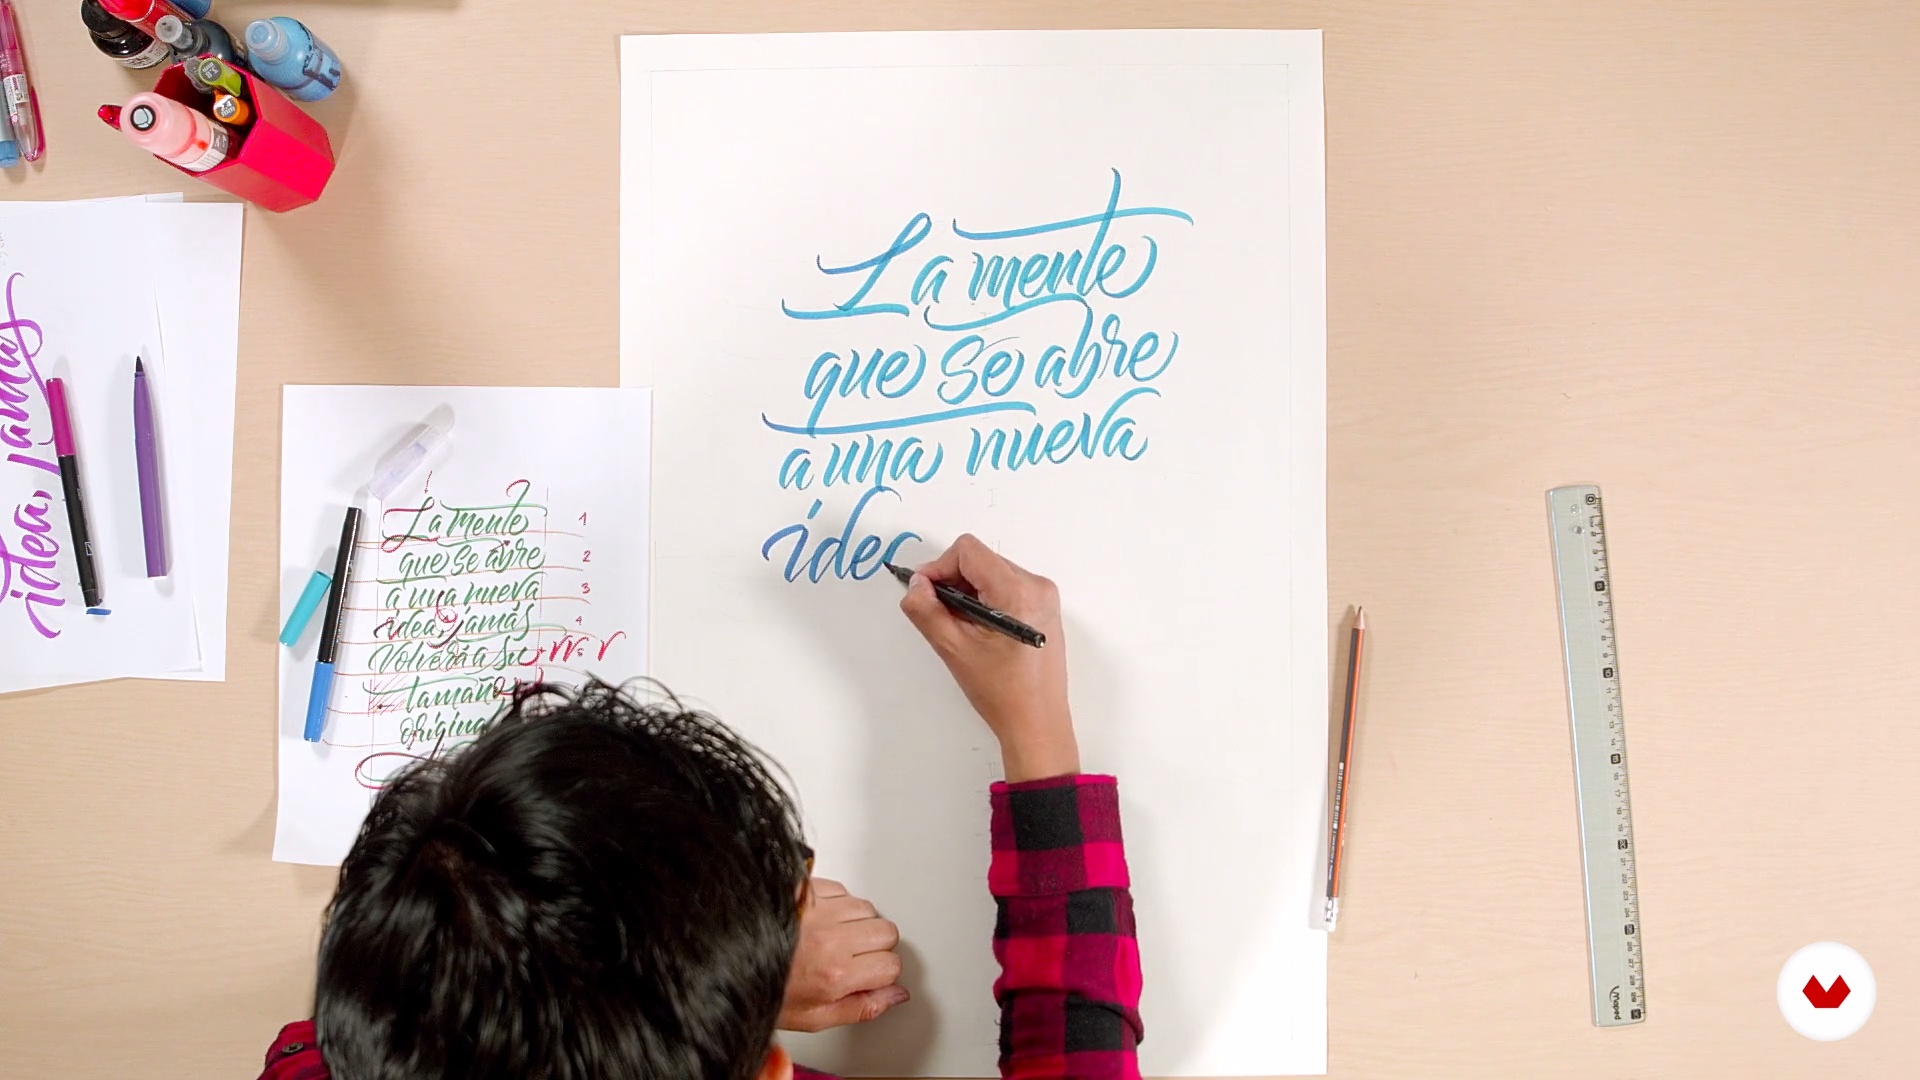 La mente
que se abre
a una nueva
idea
La mente
que se abre
a una nueva
idea, jamás
Volverá a su
tamaño
original
1
2
3
4
idea, jamás
Maped